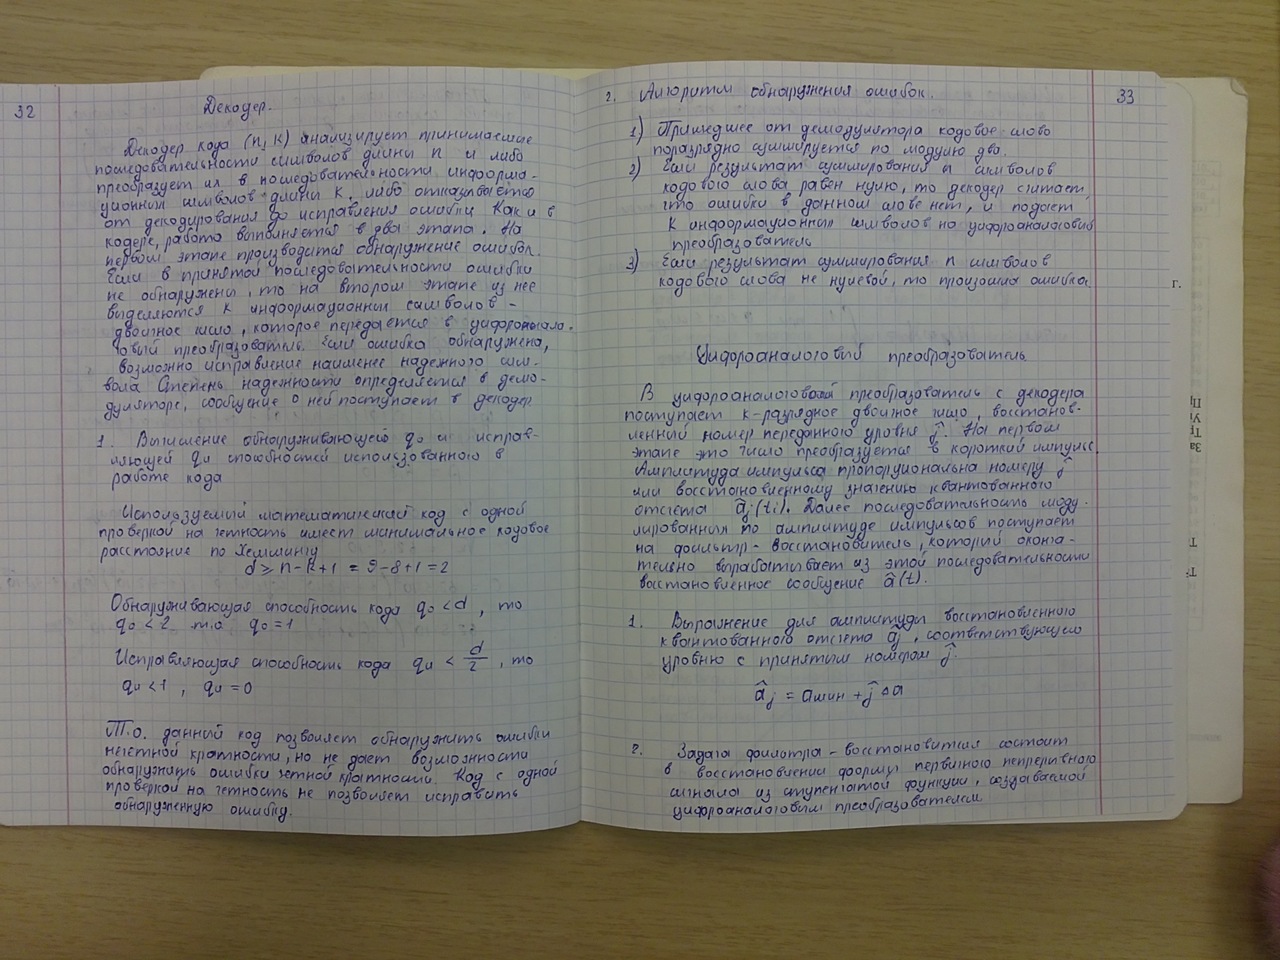 32
Декодер.
Декодер кода (n, k) анализирует принимаемые
последовательности символов длины n и либо
преобразует их в последовательности информа-
ционных символов длины k, либо отказывается
от декодирования до исправления ошибки. Как и в
кодере, работа выполняется в два этапа. На
первом этапе производится обнаружение ошибок.
Если в принятой последовательности ошибки
не обнаружены, то на втором этапе из нее
выделяются k информационных символов -
двоичное число, которое передается в цифроанало-
говый преобразователь. Если ошибка обнаружена,
возможно исправление наименее надежного сим-
вола. Степень надежности определяется в демо-
дуляторе, сообщение о ней поступает в декодер
1. Вычисление обнаруживающей qо и исправ-
ляющей qи способностей использованного в
работе кода
Используемый математический код с одной
проверкой на четность имеет минимальное кодовое
расстояние по Хеммингу
d ≥ n-k+1 = 9-8+1 = 2
Обнаруживающая способность кода qо < d, то
qо < 2 т.о. qо = 1
Исправляющая способность кода qи < d/2, то
qи < 1, qи = 0
Т.о. данный код позволяет обнаружить ошибки
нечетной кратности, но не дает возможности
обнаружить ошибки четной кратности. Код с одной
проверкой на четность не позволяет исправить
обнаруженную ошибку.
33
2. Алгоритм обнаружения ошибок.
1) Пришедшее от демодулятора кодовое слово
поразрядно суммируется по модулю два.
2) Если результат суммирования n символов
кодового слова равен нулю, то декодер считает,
что ошибки в данном слове нет, и подает
k информационных символов на цифроаналоговый
преобразователь
3) Если результат суммирования n символов
кодового слова не нулевой, то произошла ошибка.
Цифроаналоговый преобразователь
В цифроаналоговый преобразователь с декодера
поступает k-разрядное двоичное число, восстанов-
ленный номер переданного уровня ĵ. На первом
этапе это число преобразуется в короткий импульс.
Амплитуда импульса пропорциональна номеру ĵ
или восстановленному значению квантованного
отсчета âj(ti). Далее последовательность моду-
лированных по амплитуде импульсов поступает
на фильтр-восстановитель, который оконча-
тельно вырабатывает из этой последовательности
восстановленное сообщение â(t).
1. Выражение для амплитуды восстановленного
квантованного отсчета âj, соответствующего
уровню с принятым номером ĵ.
âj = aмин + ĵ Δa
2. Задача фильтра-восстановителя состоит
в восстановлении формы первичного непрерывного
сигнала из ступенчатой функции, создаваемой
цифроаналоговым преобразователем
г.